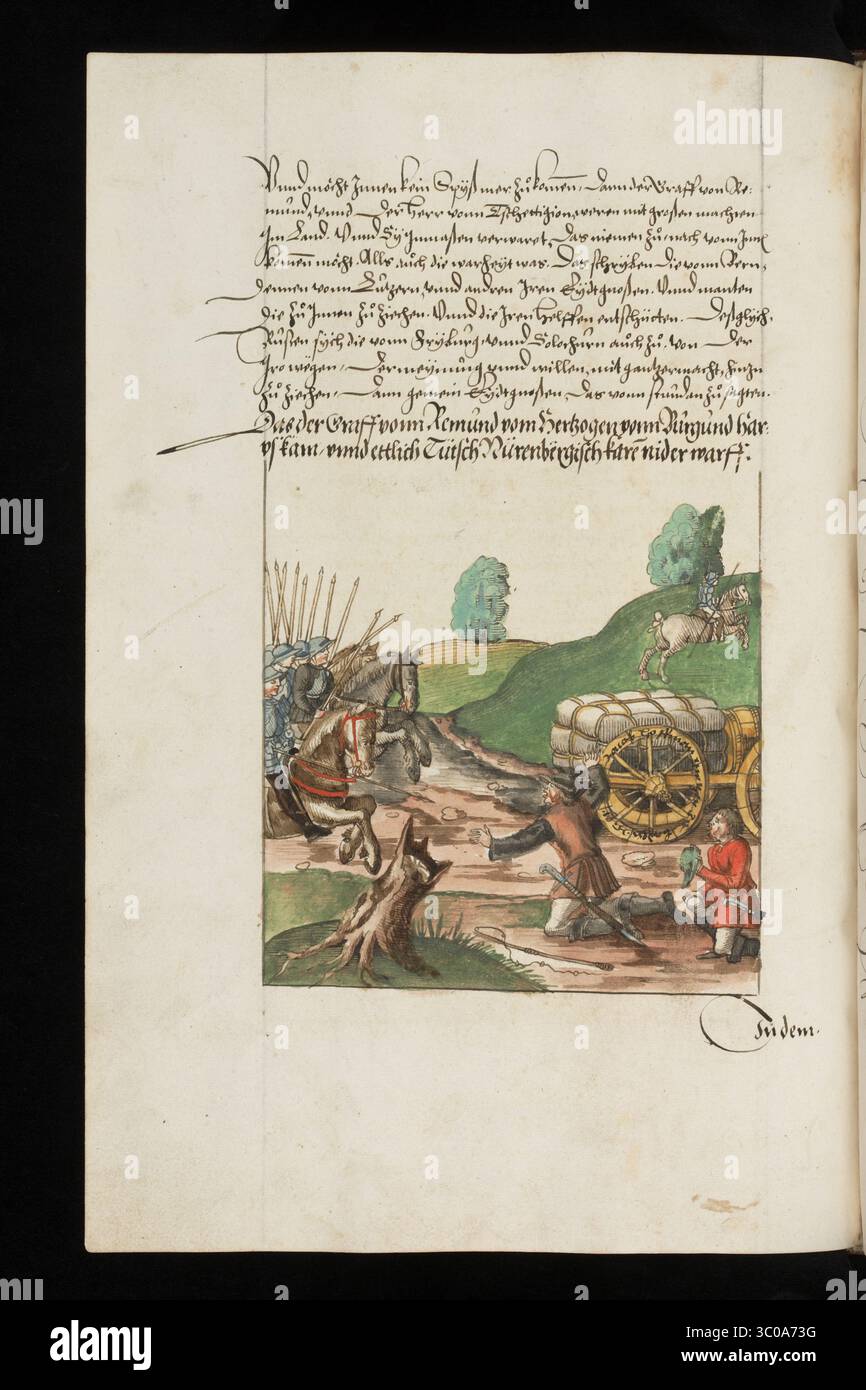 Vnnd möcht Innen kein Spyß mer zůkomen, Dann der Graff von Re:
mund, vnnd Der Herr vonn Tschettigion, weren mit großen machten
Im Land. Vnnd Sÿ Inmaßen verwaret, Das niemen zů, nach vonn Inn
komen möcht. Alls auch die warheyt was. Das schryben die vonn Bern,
Dennen vonn Lutzern, vnnd andren Iren Eydtgnoßen. Vnnd manten
die zů Innen zů ziechen. Vnnd die Iren helffen entschütten. Deßglych
Rusten sych die vonn Fryburg, vnnd Solothurn auch zů, von Der
wegen, Der meynung vnnd willen, mit gantzer macht, hinzu
zů ziechen, Dann gemein Eydtgnoßen, Das vonn stund an zů sagten.
Das der Graff vonn Remund vom Hertzogen vonn Burgund har:
vs kam, vnnd ettlich Tütsch Nürenbergisch karen nider warff.
Zu dem.
alamy
Image ID: 3C0A73G
www.alamy.com